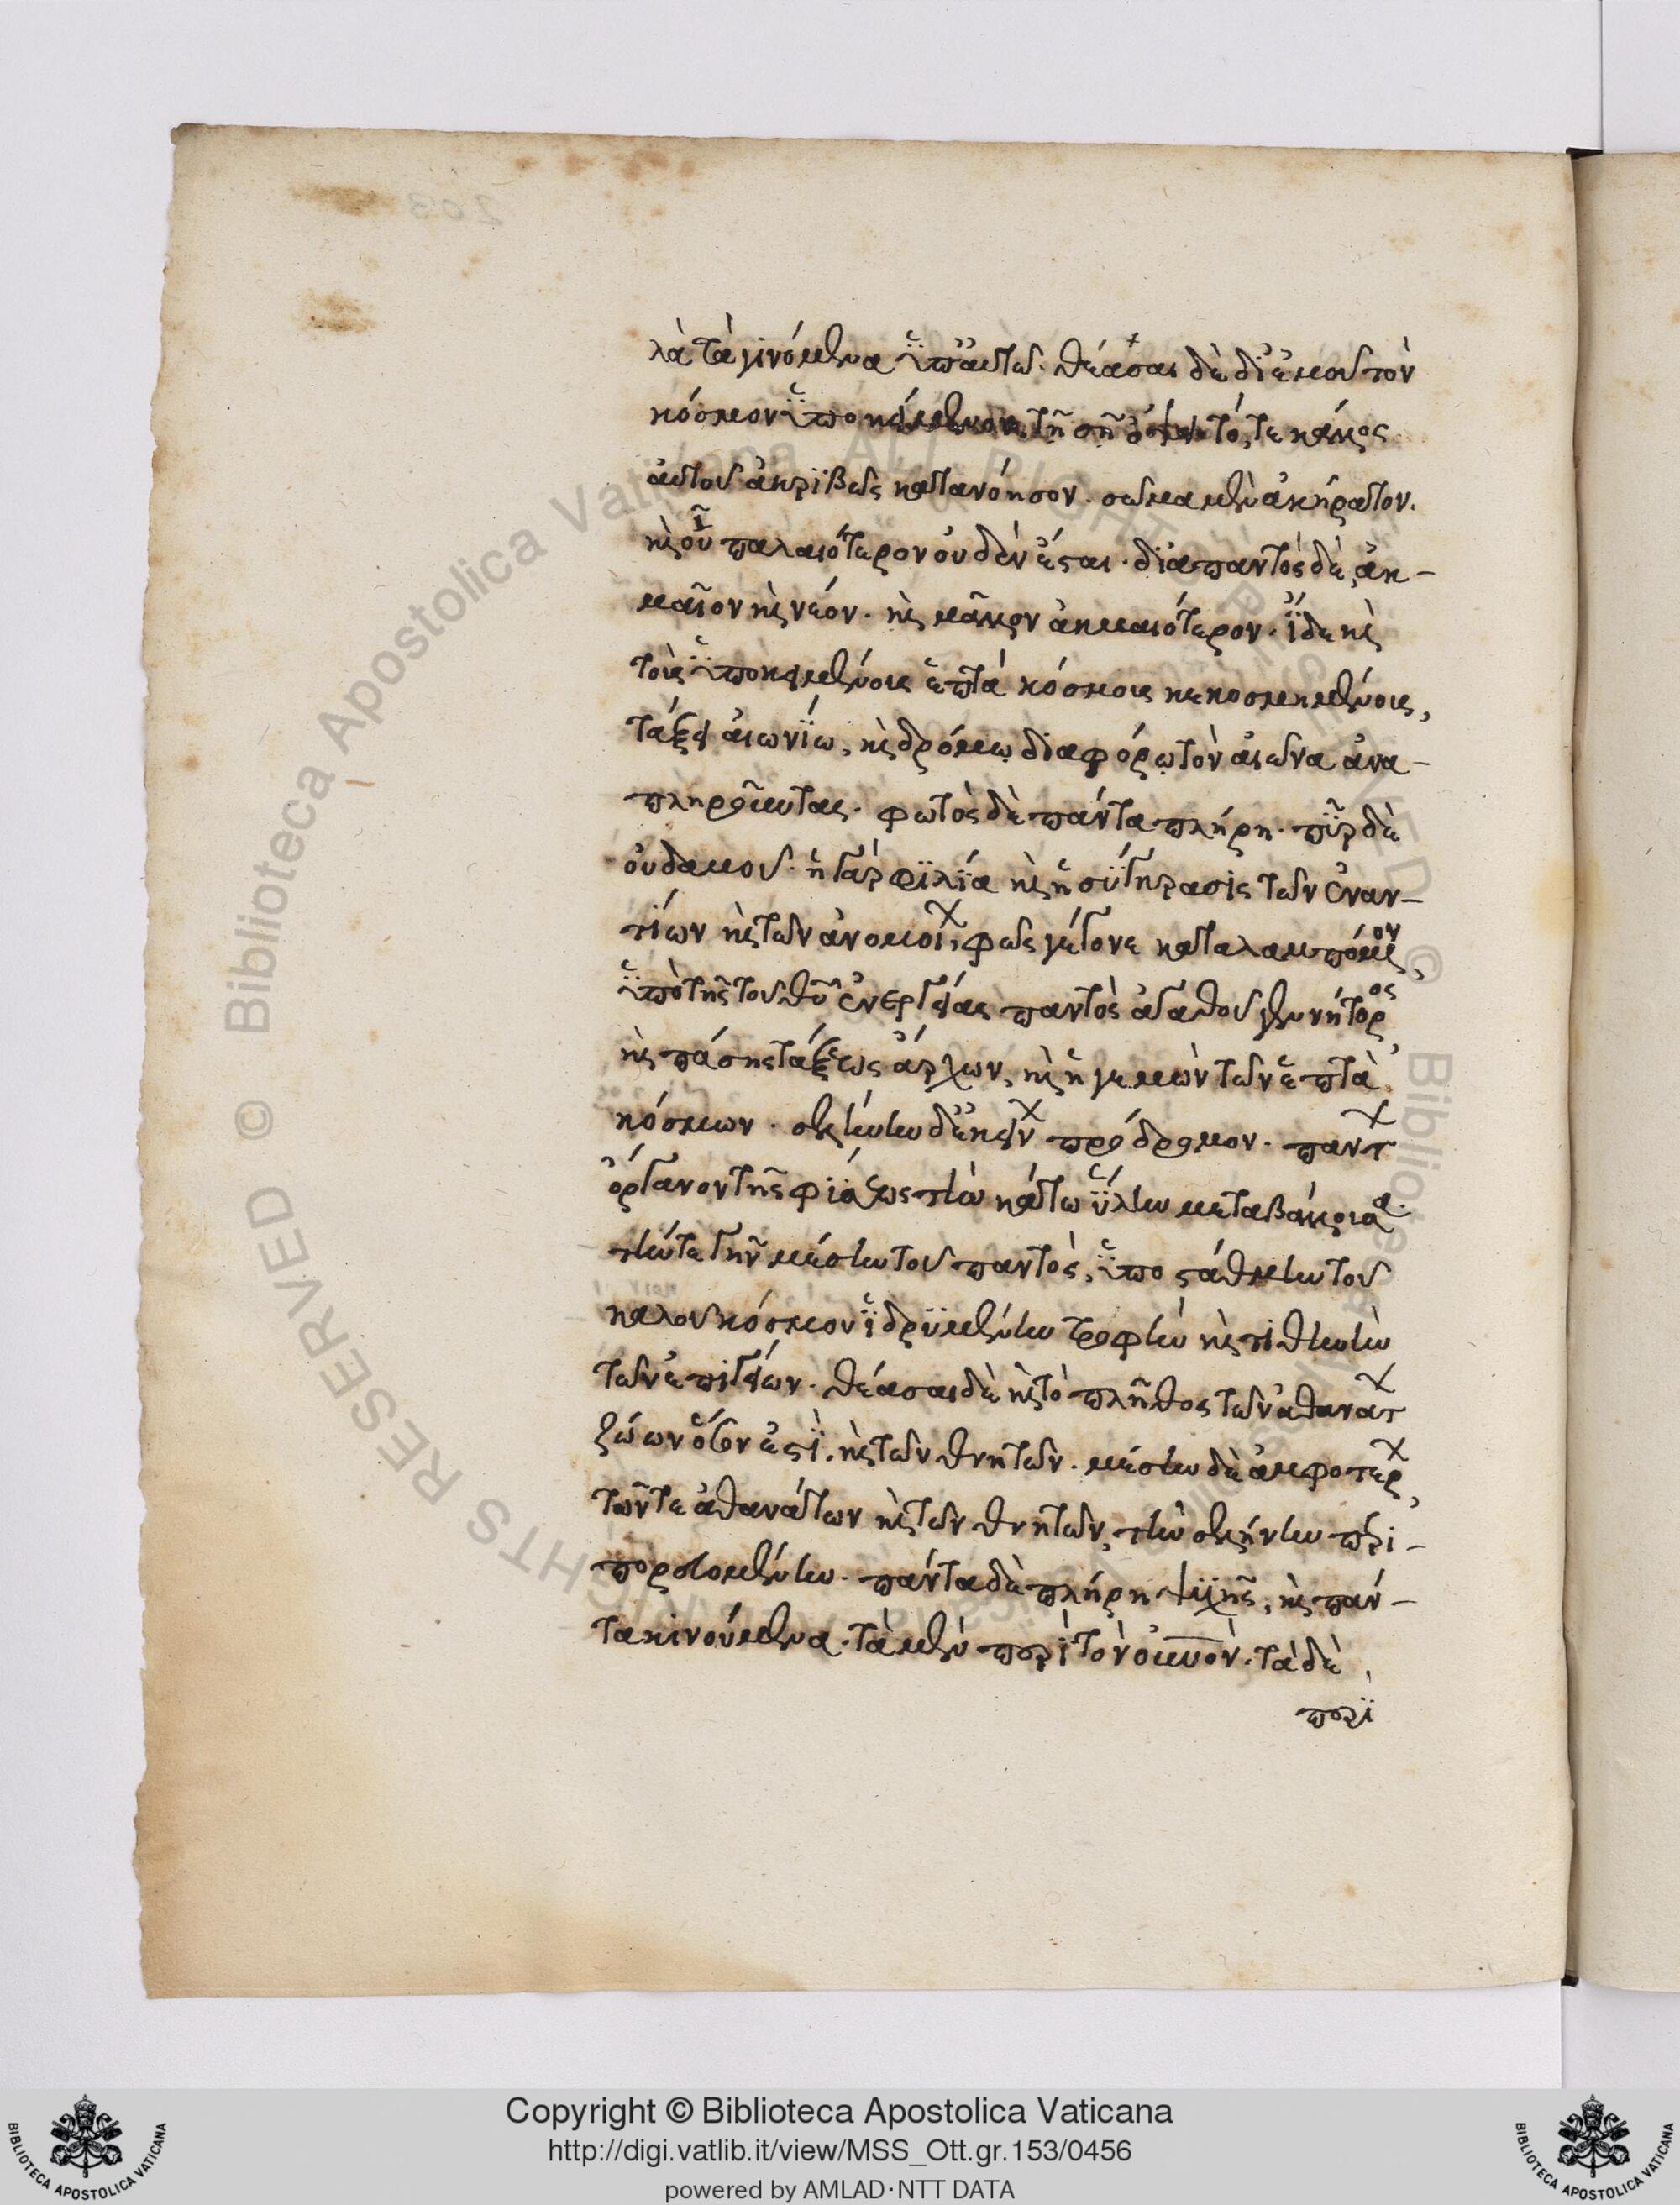 λὰ τὰ γινόμενα ὑπ' αὐτῶν. θέασαι δὲ δι' ἐμοῦ τὸν
κόσμον ὑποκείμενον τῇ σῇ ὄψει τό, τε κάλλος
αὐτοῦ ἀκριβῶς κατανόησον. σῶμα μὲν ἀκήρατον.
καὶ οὗ παλαιότερον οὐδὲν ἔσται. διαπαντὸς δὲ, ἀκ-
μαῖον καὶ νέον. καὶ μᾶλλον ἀκμαιότερον. ἴδε καὶ
τοὺς ὑποκειμένους ἑπτὰ κόσμους κεκοσμημένους,
τάξει αἰωνίῳ, καὶ δρόμῳ διαφόρῳ τὸν αἰῶνα ἀνα-
πληροῦντας. φωτὸς δὲ πάντα πλήρη. πῦρ δὲ
οὐδαμοῦ. ἡ γὰρ φιλία καὶ ἡ σύγκρασις τῶν ἐναν-
τίων καὶ τῶν ἀνομοίων, φῶς γέγονε καταλαμπόμενον,
ὑπὸ τῆς τοῦ θυ ἐνεργείας παντὸς ἀγαθοῦ γεννήτορος,
καὶ πάσης τάξεως ἄρχων, καὶ ἡγεμὼν τῶν ἑπτὰ
κόσμων. σελήνην δ' ἐκείνων πρόδρομον. πάντων
ὄργανον τῆς φύσεως τὴν κάτω ὕλην μεταβάλλουσα.
τήν τε γῆν μέσην τοῦ παντὸς, ὑποστάθμην τοῦ
καλοῦ κόσμου ἱδρυμένην τροφὴν καὶ τιθηνὴν
τῶν ἐπιγείων. θέασαι δὲ καὶ τὸ πλῆθος τῶν ἀθανάτων
ζώων ὅσον ἐστί. καὶ τῶν θνητῶν. μέσην δὲ ἀμφοτέρων,
τῶν τε ἀθανάτων καὶ τῶν θνητῶν, τὴν σελήνην περι-
πορευομένην. πάντα δὲ πλήρη ψυχῆς, καὶ πάν-
τα κινούμενα. τὰ μὲν περὶ τὸν οὐνον. τὰ δὲ
περὶ
Copyright © Biblioteca Apostolica Vaticana
http://digi.vatlib.it/view/MSS_Ott.gr.153/0456
powered by AMLAD·NTT DATA
BIBLIOTECA APOSTOLICA VATICANA
BIBLIOTECA APOSTOLICA VATICANA